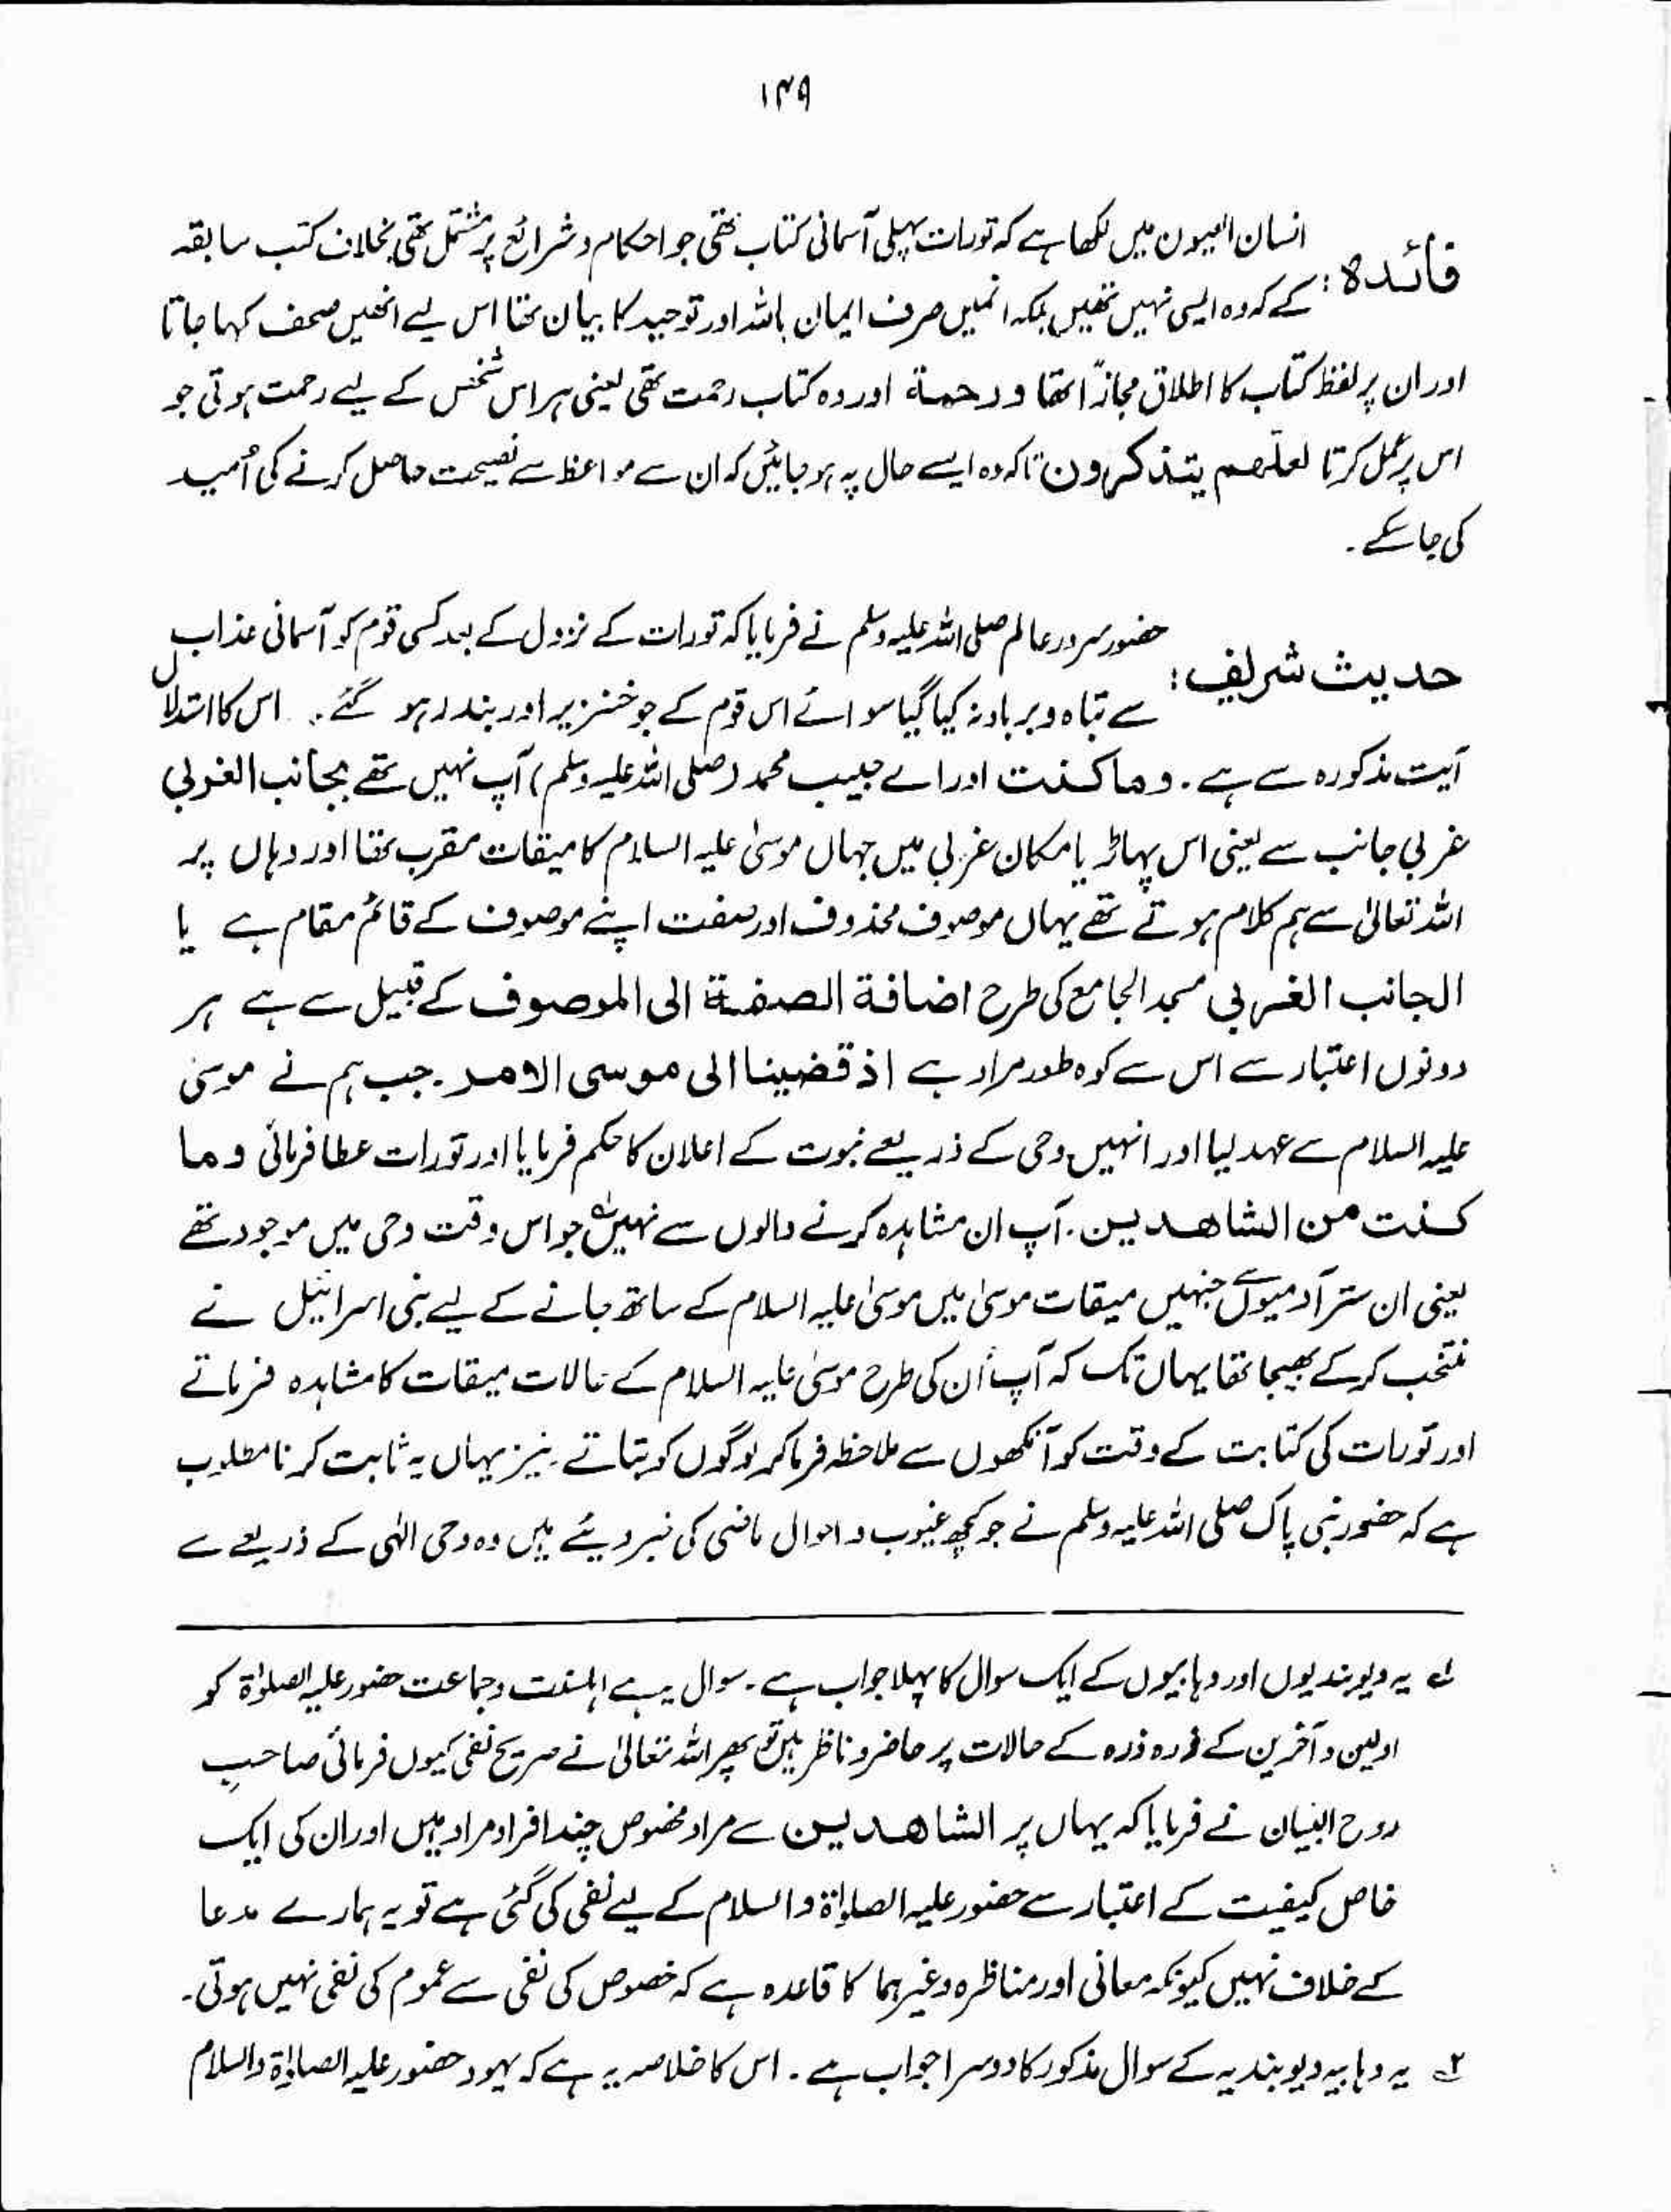 ۱۴۹
فائدہ: انسان العیون میں لکھا ہے کہ تورات پہلی آسمانی کتاب تھی جو احکام و شرائع پر مشتمل تھی بخلاف کتب سابقہ
کے کہ وہ ایسی نہیں تھیں بلکہ انمیں صرف ایمان باللہ اور توحید کا بیان تھا اس لیے انھیں صحف کہا جاتا
اور ان پر لفظ کتاب کا اطلاق مجازاً تھا و رحمة اور وہ کتاب رحمت تھی یعنی ہر اس شخص کے لیے رحمت ہوتی جو
اس پر عمل کرتا لعلّھم یتذکرون تاکہ وہ ایسے حال پہ ہو جائیں کہ ان سے مواعظ سے نصیحت حاصل کرنے کی اُمید
کی جا سکے۔
حدیث شریف: حضور سرور عالم صلی اللہ علیہ وسلم نے فرمایا کہ تورات کے نزول کے بعد کسی قوم کو آسمانی عذاب
سے تباہ و برباد نہ کیا گیا سوائے اس قوم کے جو خنزیر اور بندر ہو گئے۔ اس کا استدلال
آیت مذکورہ سے ہے۔ وما کنت اور اے حبیب محمد (صلی اللہ علیہ وسلم) آپ نہیں تھے بجانب الغربی
غربی جانب سے یعنی اس پہاڑ یا مکان غربی میں جہاں موسیٰ علیہ السلام کا میقات مقرب تھا اور وہاں پر
اللہ تعالیٰ سے ہم کلام ہوتے تھے یہاں موصوف محذوف اور صفت اپنے موصوف کے قائم مقام ہے یا
الجانب الغربی مسجد الجامع کی طرح اضافة الصفة الی الموصوف کے قبیل سے ہے ہر
دونوں اعتبار سے اس سے کوہ طور مراد ہے اذ قضینا الی موسی الامر۔ جب ہم نے موسیٰ
علیہ السلام سے عہد لیا اور انہیں وحی کے ذریعے نبوت کے اعلان کا حکم فرمایا اور تورات عطا فرمائی وما
کنت من الشاھدین۔ آپ ان مشاہدہ کرنے والوں سے نہیں جو اس وقت وحی میں موجود تھے
یعنی ان ستر آدمیوں سے جنہیں میقات موسیٰ میں موسیٰ علیہ السلام کے ساتھ جانے کے لیے بنی اسرائیل نے
منتخب کر کے بھیجا تھا یہاں تک کہ آپ اُن کی طرح موسیٰ علیہ السلام کے حالات میقات کا مشاہدہ فرماتے
اور تورات کی کتابت کے وقت کو آنکھوں سے ملاحظہ فرما کر لوگوں کو بتاتے۔ نیز یہاں یہ ثابت کرنا مطلوب
ہے کہ حضور نبی پاک صلی اللہ علیہ وسلم نے جو کچھ غیوب و احوال ماضی کی خبر دیئے ہیں وہ وحی الٰہی کے ذریعے سے
۱؎ یہ دیوبندیوں اور وہابیوں کے ایک سوال کا پہلا جواب ہے۔ سوال یہ ہے اہلسنت وجماعت حضور علیہ الصلوٰۃ کو
اولین و آخرین کے ذرہ ذرہ کے حالات پر حاضر و ناظر ہیں تو پھر اللہ تعالیٰ نے صریح نفی کیوں فرمائی صاحبِ
روح البیان نے فرمایا کہ یہاں پر الشاھدین سے مراد مخصوص چند افراد مراد ہیں اور ان کی ایک
خاص کیفیت کے اعتبار سے حضور علیہ الصلوٰۃ والسلام کے لیے نفی کی گئی ہے تو یہ ہمارے مدعا
کے خلاف نہیں کیونکہ معانی اور مناظرہ وغیرہما کا قاعدہ ہے کہ خصوص کی نفی سے عموم کی نفی نہیں ہوتی۔
۲؎ یہ وہابیہ دیوبندیہ کے سوال مذکور کا دوسرا جواب ہے۔ اس کا خلاصہ یہ ہے کہ یہود حضور علیہ الصلوٰۃ والسلام